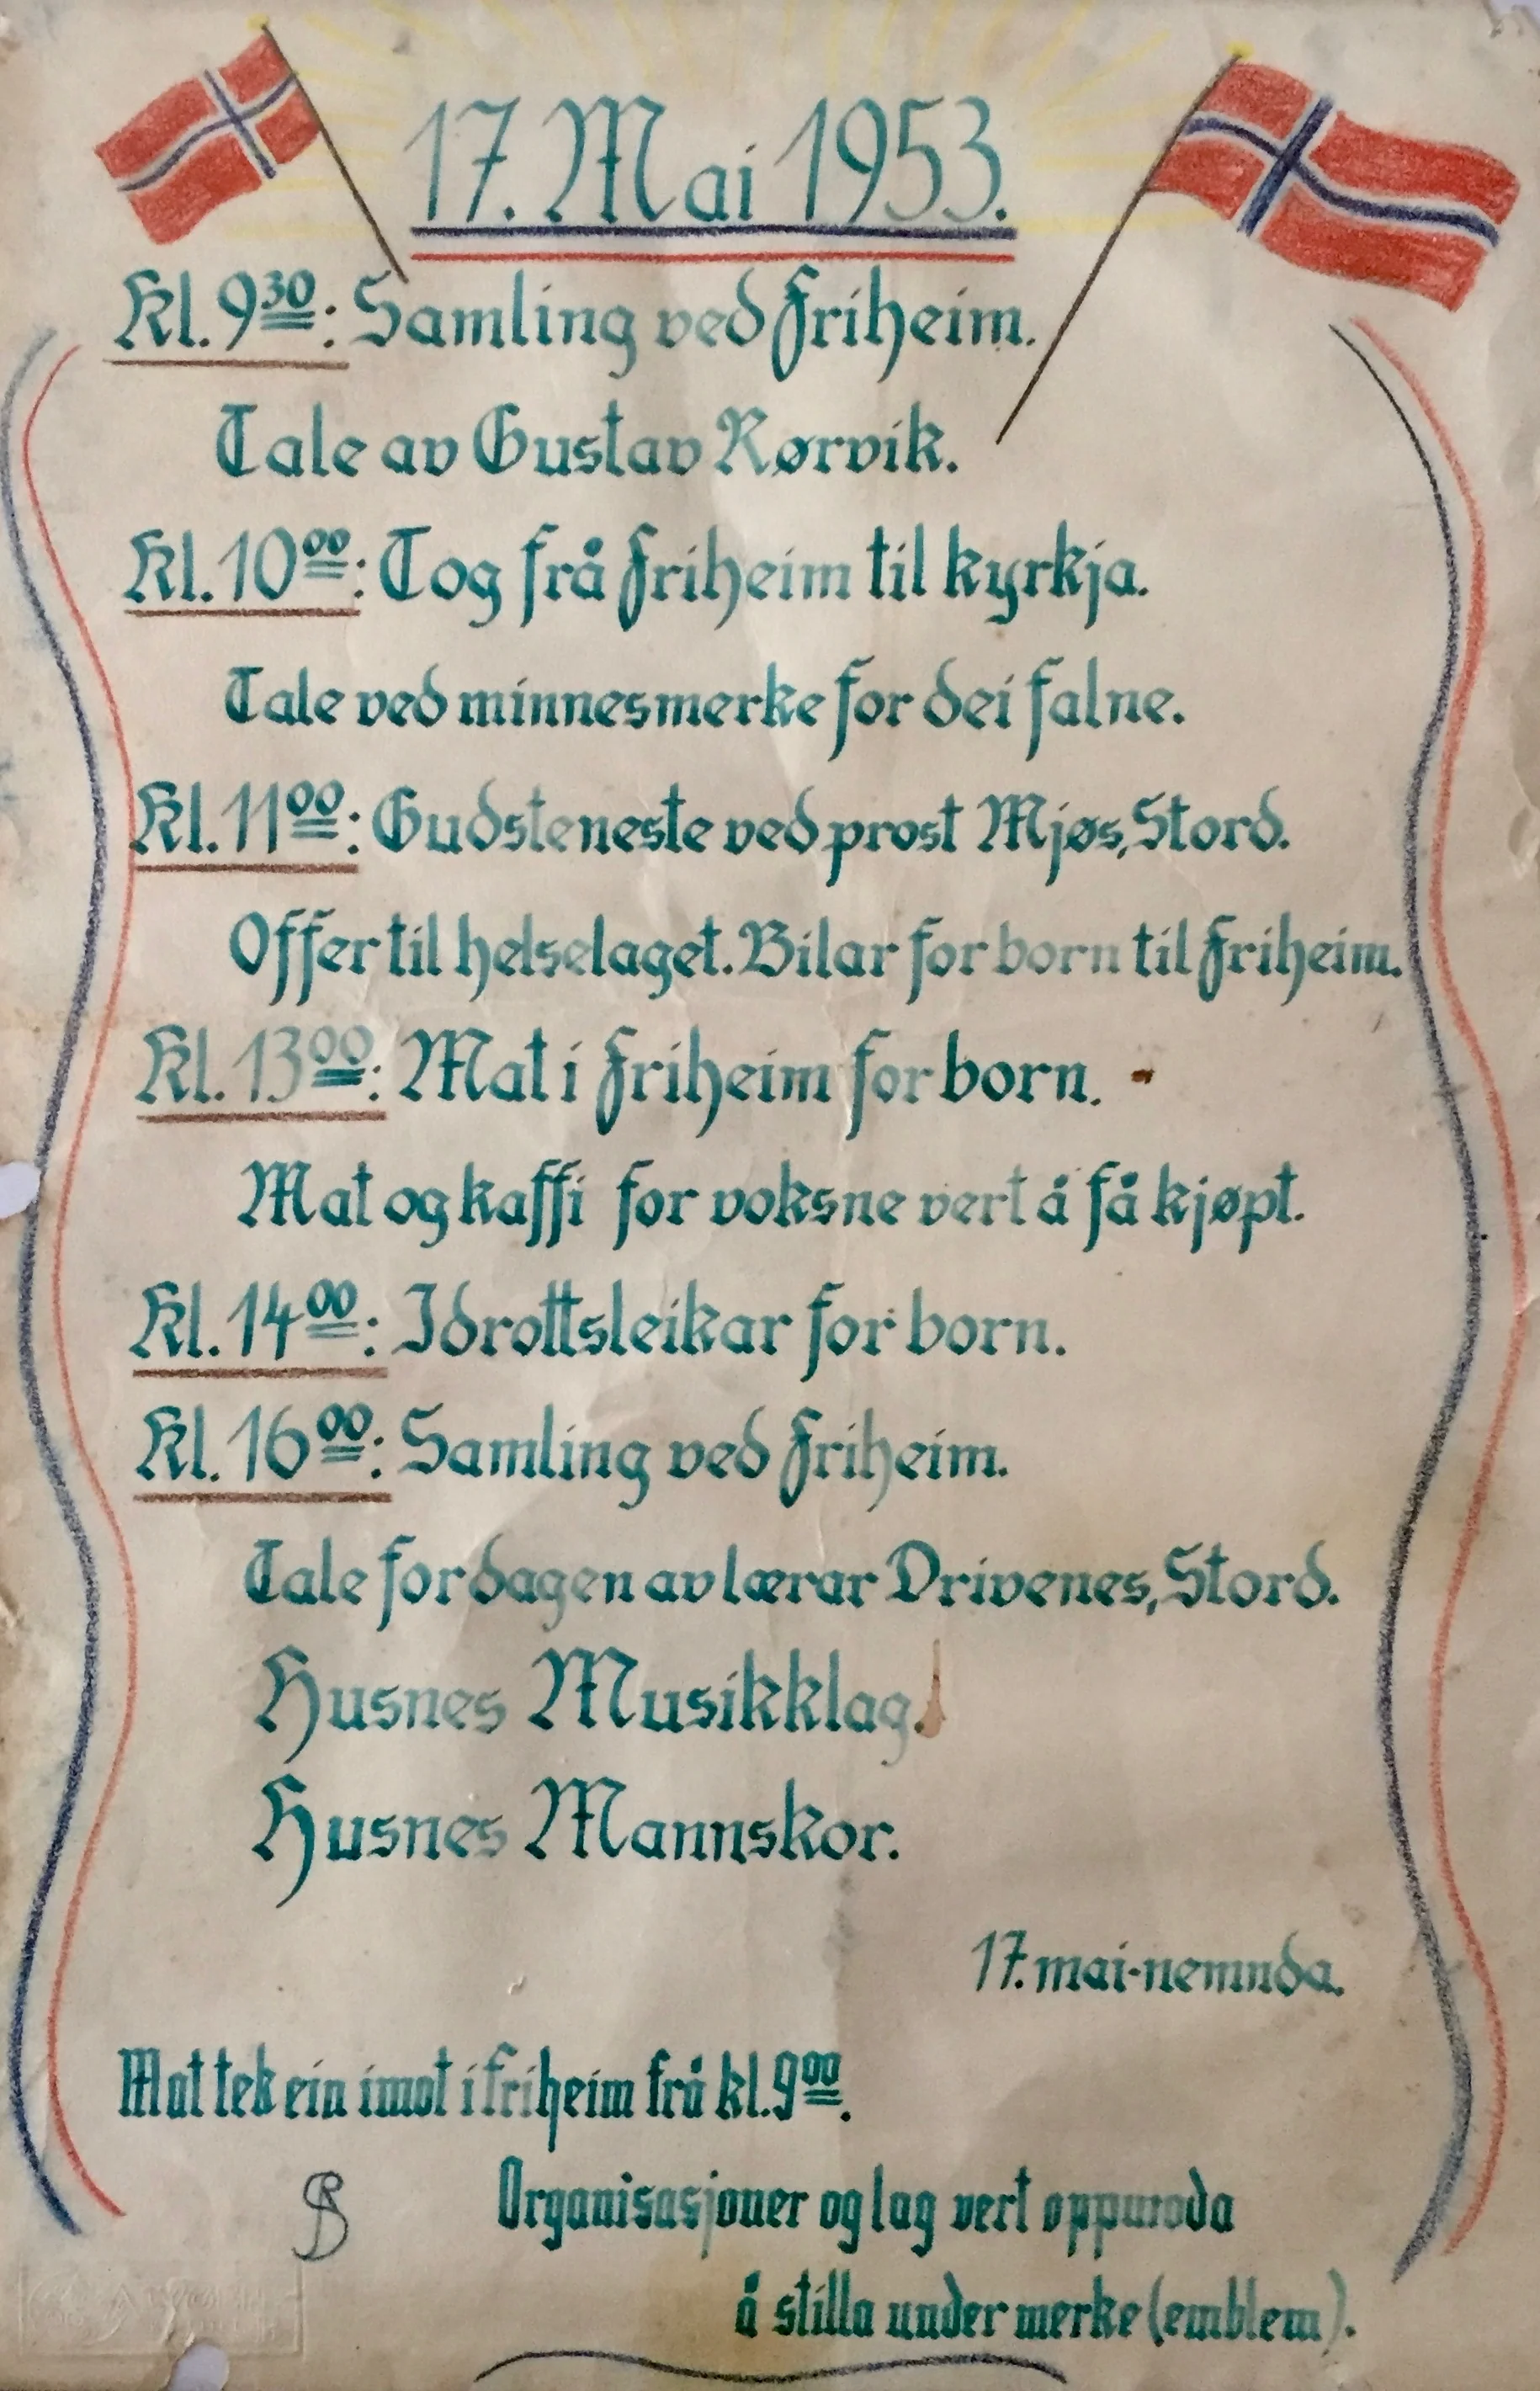 17. Mai 1953.
Kl. 9³⁰: Samling ved Friheim.
Tale av Gustav Rørvik.
Kl. 10⁰⁰: Tog frå Friheim til kyrkja.
Tale ved minnesmerke for dei falne.
Kl. 11⁰⁰: Gudsteneste ved prost Mjøs, Stord.
Offer til helselaget. Bilar for born til Friheim.
Kl. 13⁰⁰: Mat i Friheim for born.
Mat og kaffi for voksne vert å få kjøpt.
Kl. 14⁰⁰: Idrottsleikar for born.
Kl. 16⁰⁰: Samling ved Friheim.
Tale for dagen av lærar Drivenes, Stord.
Husnes Musikklag.
Husnes Mannskor.
17. mai-nemnda.
Mat tek ein imot i friheim frå kl. 9⁰⁰.
Organisasjoner og lag vert oppmoda
å stilla under merke (emblem).